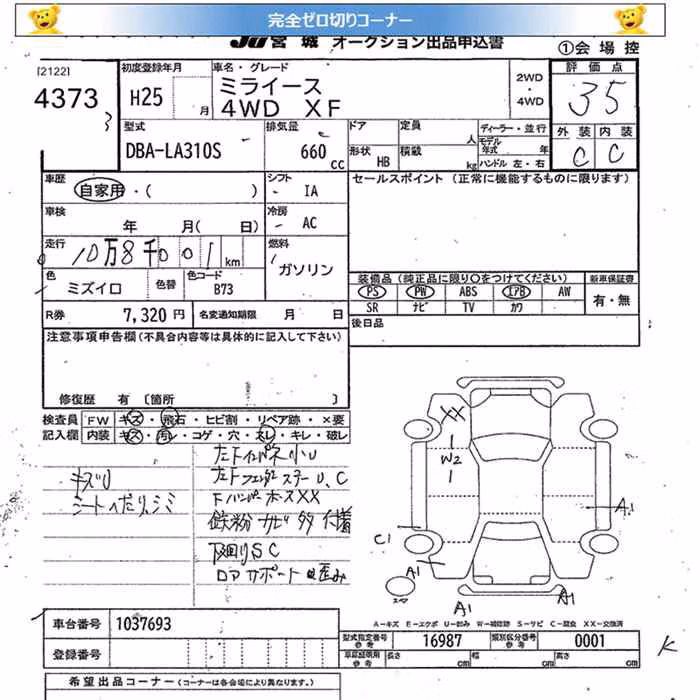 完全ゼロ切りコーナー
JU宮城 オークション出品申込書
①会場控
[2122]
4373
3
初度登録年月
H25 月
車名・グレード
ミライース
4WD XF
2WD
・
4WD
評価点
35
型式
DBA-LA310S
排気量
660 cc
ドア
形状 HB
定員 人
積載 kg
ディーラー・並行
モデル年式 年
ハンドル 左・右
外装 内装
C C
車歴
自家用・( )
シフト
IA
セールスポイント (正常に機能するものに限ります)
車検
年 月( 日)
冷房
AC
走行
10万8千001 km
燃料
ガソリン
色
ミズイロ
色替
色コード
B73
装備品 (純正品に限り○をつけてください)
新車保証書
PS PW ABS エアB AW
有・無
SR ナビ TV カワ
R券 7,320 円
名変通知期限 月 日
後日品
注意事項申告欄 (不具合内容等は具体的に記入して下さい)
修復歴 有 〔箇所 〕
検査員
記入欄
FW キズ・飛石・ヒビ割・リペア跡・×要
内装 キズ・汚レ・コゲ・穴・スレ・キレ・破レ
キズU
シートへたり、シミ
左Fインパネ小U
左Fフェンダーステー U、C
FバンパーホースXX
鉄粉サビ多付着
下廻りSC
ロアサポート凹歪み
XX
W2
A1
C1
A1
A1
A1
A-キズ E-エクボ U-凹み W-補修跡 S-サビ C-腐食 XX-交換済
車台番号 1037693
登録番号
型式指定番号 参考 16987
類別区分番号 参考 0001
車庫証明用 参考 長さ cm 幅 cm 高さ cm
K
希望出品コーナー (コーナーは各会場により異なります。)